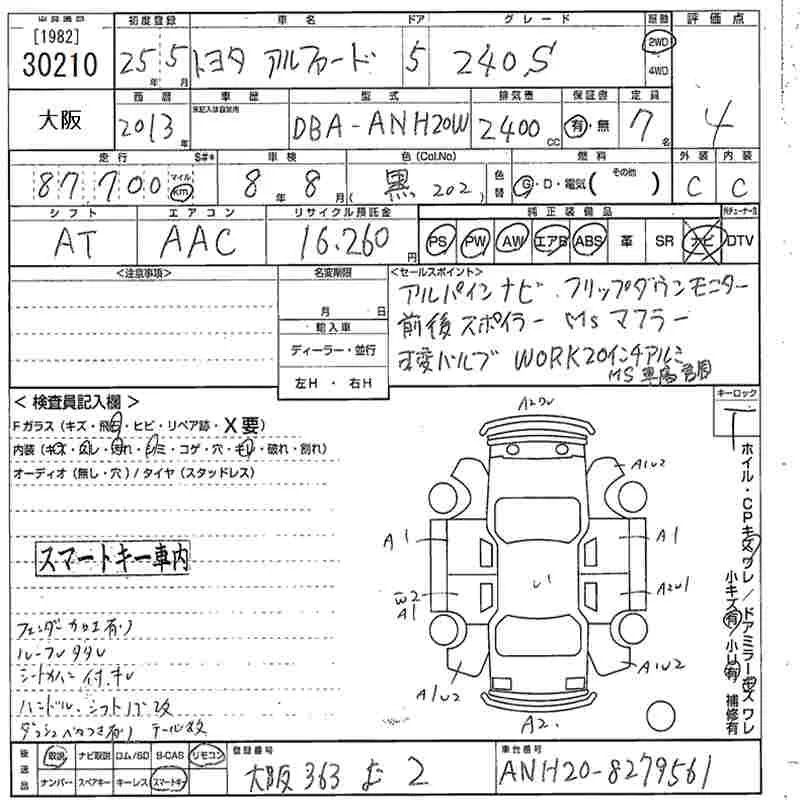 [1982]
30210
大阪
初度登録 車名 ドア グレード 駆動 評価点
25年 5月 トヨタ アルファード 5 240S 2WD 4WD 4
西暦 車歴 型式 排気量 保証書 定員
2013年 未記入は自家用 DBA-ANH20W 2400cc 有・無 7名
走行 S#* 車検 色(Col.No) 燃料 外装 内装
87700 マイル km 8年 8月 黒 202 色替 G・D・電気( その他 ) C C
シフト エアコン リサイクル預託金 純正装備品
AT AAC 16.260円 PS PW AW エアB ABS 革 SR ナビ DTV
<注意事項> 名変期限 <セールスポイント>
月 日
アルパインナビ フリップダウンモニター
前後スポイラー MSマフラー
可変バルブ WORK20インチアルミ
輸入車
ディーラー・並行
左H・右H
キーロック
T
< 検査員記入欄 >
Fガラス(キズ・飛石・ヒビ・リペア跡・X要)
内装(キズ・スレ・汚れ・シミ・コゲ・穴・キレ・破れ・割れ)
オーディオ(無し・穴)/タイヤ(スタッドレス)
スマートキー車内
フェンダー加工有り
ルーフレタタレ
シートカバー付.キレ
ハンドル.シフトノブ改
テール改
A2
A1U2
A1
A1
W2
A1
U1
A2U1
A1U2
A1U2
A2.
ホイル・CPキズワレ/ドアミラーキズワレ
小キズ有/小U有 補修有
後送品 取説 ナビ取説 ロム/SD B-CAS リモコン
ナンバー スペアキー キーレス スマートキー
登録番号
大阪 363 む 2
車台番号
ANH20-8279561